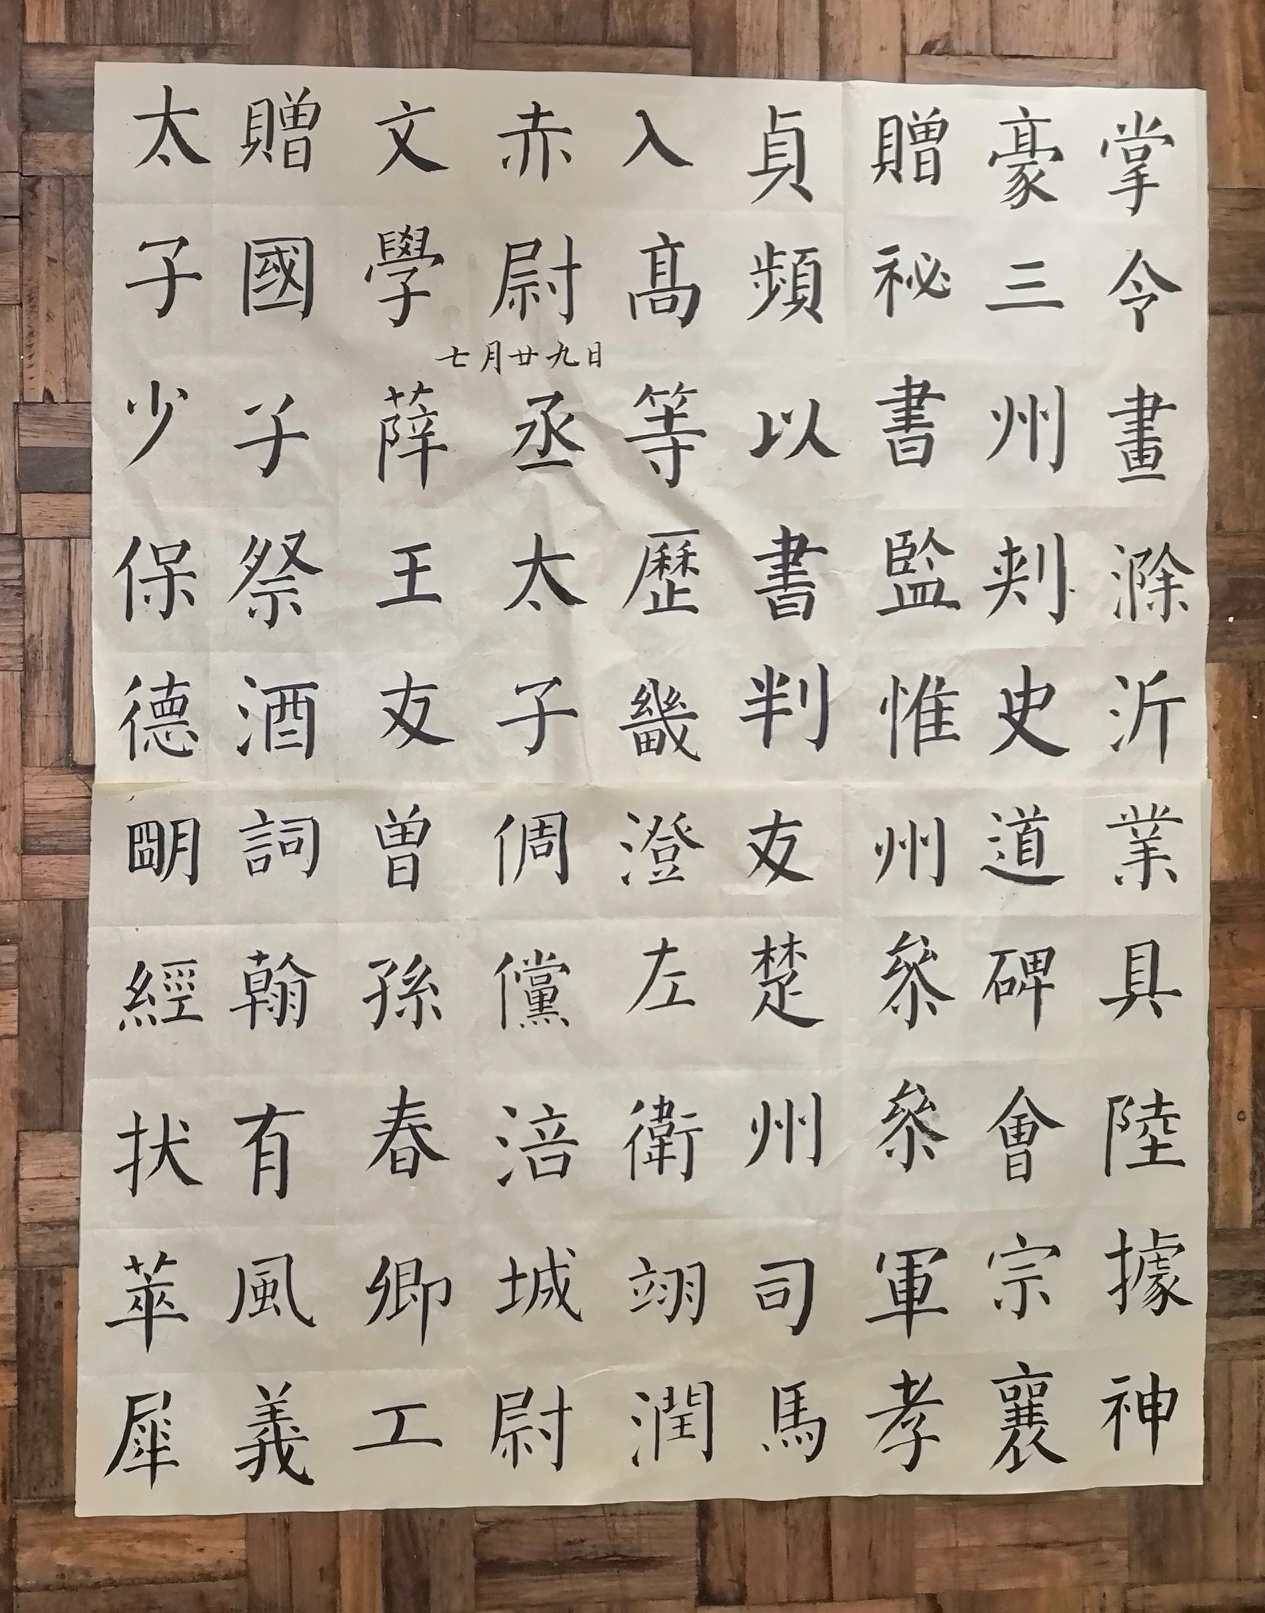 掌令畫滁沂業具陸據神
豪三州刺史道碑會宗襄
贈祕書監惟州叅叅軍孝
貞頻以書判友楚州司馬
入高等歷畿澄左衛翊潤
赤尉丞太子倜儻涪城尉
七月廿九日
文學薛王友曾孫春卿工
贈國子祭酒詞翰有風義
太子少保德明經扶萃犀